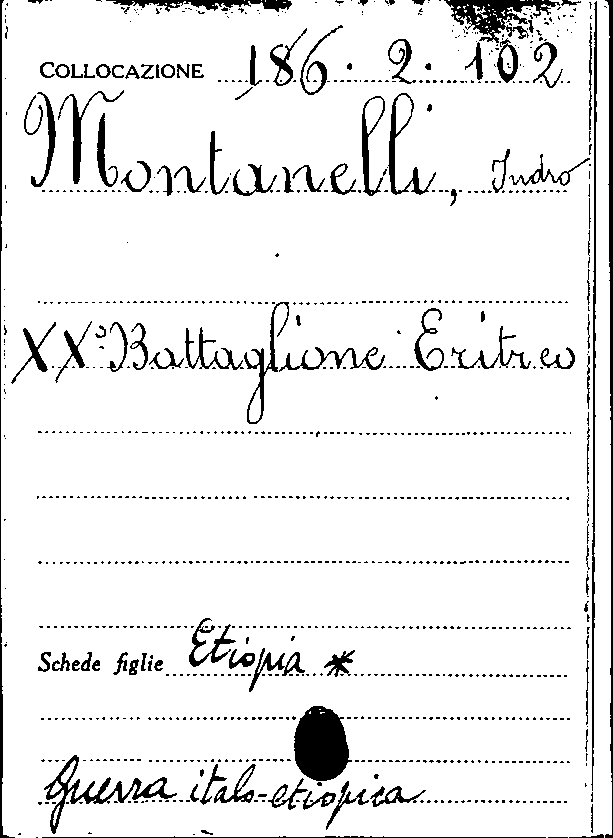 COLLOCAZIONE 186. 2. 102
Montanelli, Indro
XX° Battaglione Eritreo
Schede figlie Etiopia *
Guerra italo-etiopica